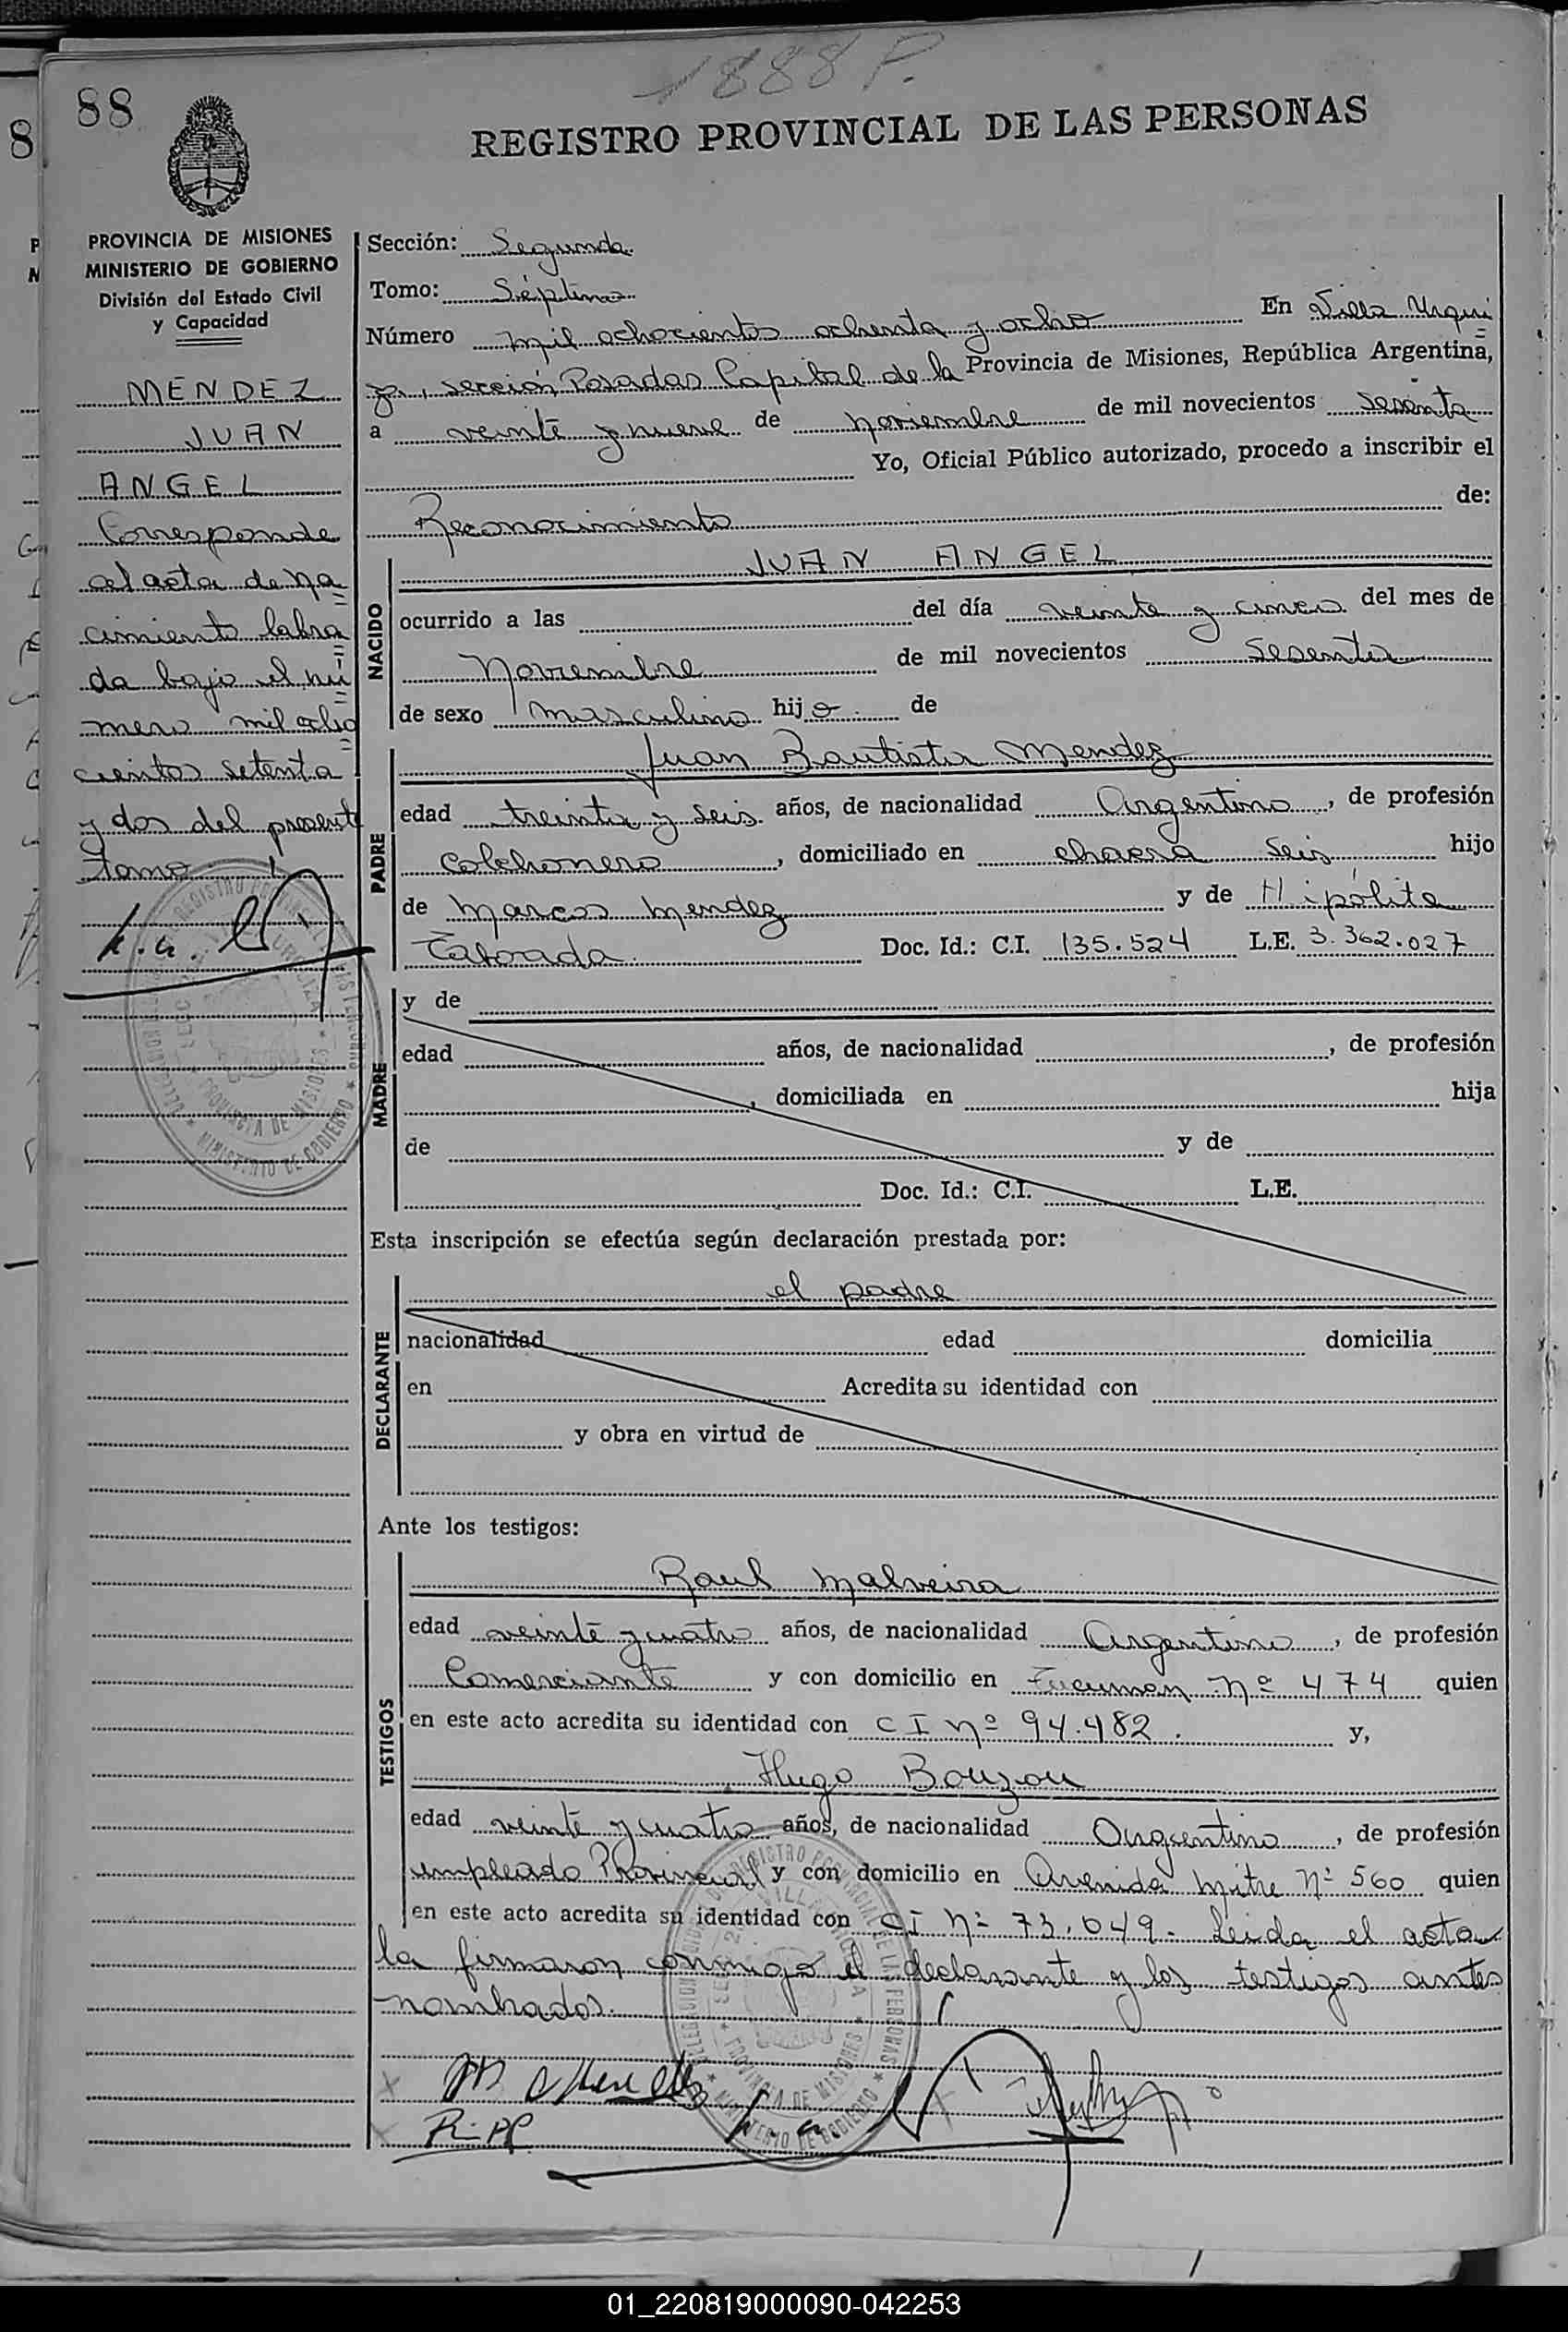 1888 P.
88
REGISTRO PROVINCIAL DE LAS PERSONAS
PROVINCIA DE MISIONES
MINISTERIO DE GOBIERNO
División del Estado Civil
y Capacidad
MENDEZ
JUAN
ANGEL
Corresponde
al acta de na
cimiento labra
da bajo el nú
mero mil ocho
cientos setenta
y dos del presente
tomo
Sección: Segunda
Tomo: Séptimo
Número mil ochocientos ochenta y ocho En Villa Urqui
za, sección Posadas Capital de la Provincia de Misiones, República Argentina,
a veinte y nueve de noviembre de mil novecientos sesenta
Yo, Oficial Público autorizado, procedo a inscribir el
Reconocimiento de:
NACIDO
JUAN ANGEL
ocurrido a las del día veinte y cinco del mes de
Noviembre de mil novecientos sesenta
de sexo masculino hijo de
PADRE
Juan Bautista Mendez
edad treinta y seis años, de nacionalidad Argentino, de profesión
Colchonero, domiciliado en chacra seis hijo
de Marcos Mendez y de Hipólita
Taborda Doc. Id.: C.I. 135.524 L.E. 3.362.027
MADRE
y de
edad años, de nacionalidad , de profesión
, domiciliada en hija
de y de
Doc. Id.: C.I. L.E.
Esta inscripción se efectúa según declaración prestada por:
DECLARANTE
el padre
nacionalidad edad domicilia
en Acredita su identidad con
y obra en virtud de
Ante los testigos:
TESTIGOS
Raul Malveira
edad veinte y cuatro años, de nacionalidad Argentino, de profesión
Comerciante y con domicilio en Tucuman Nº 474 quien
en este acto acredita su identidad con CI Nº 94.482. y,
Hugo Bouzou
edad veinte y cuatro años, de nacionalidad Argentino, de profesión
empleado Provincial y con domicilio en Avenida Mitre Nº 560 quien
en este acto acredita su identidad con CI Nº 73.049. Leida el acta
la firmaron conmigo el declarante y los testigos antes
nombrados.
01_220819000090-042253